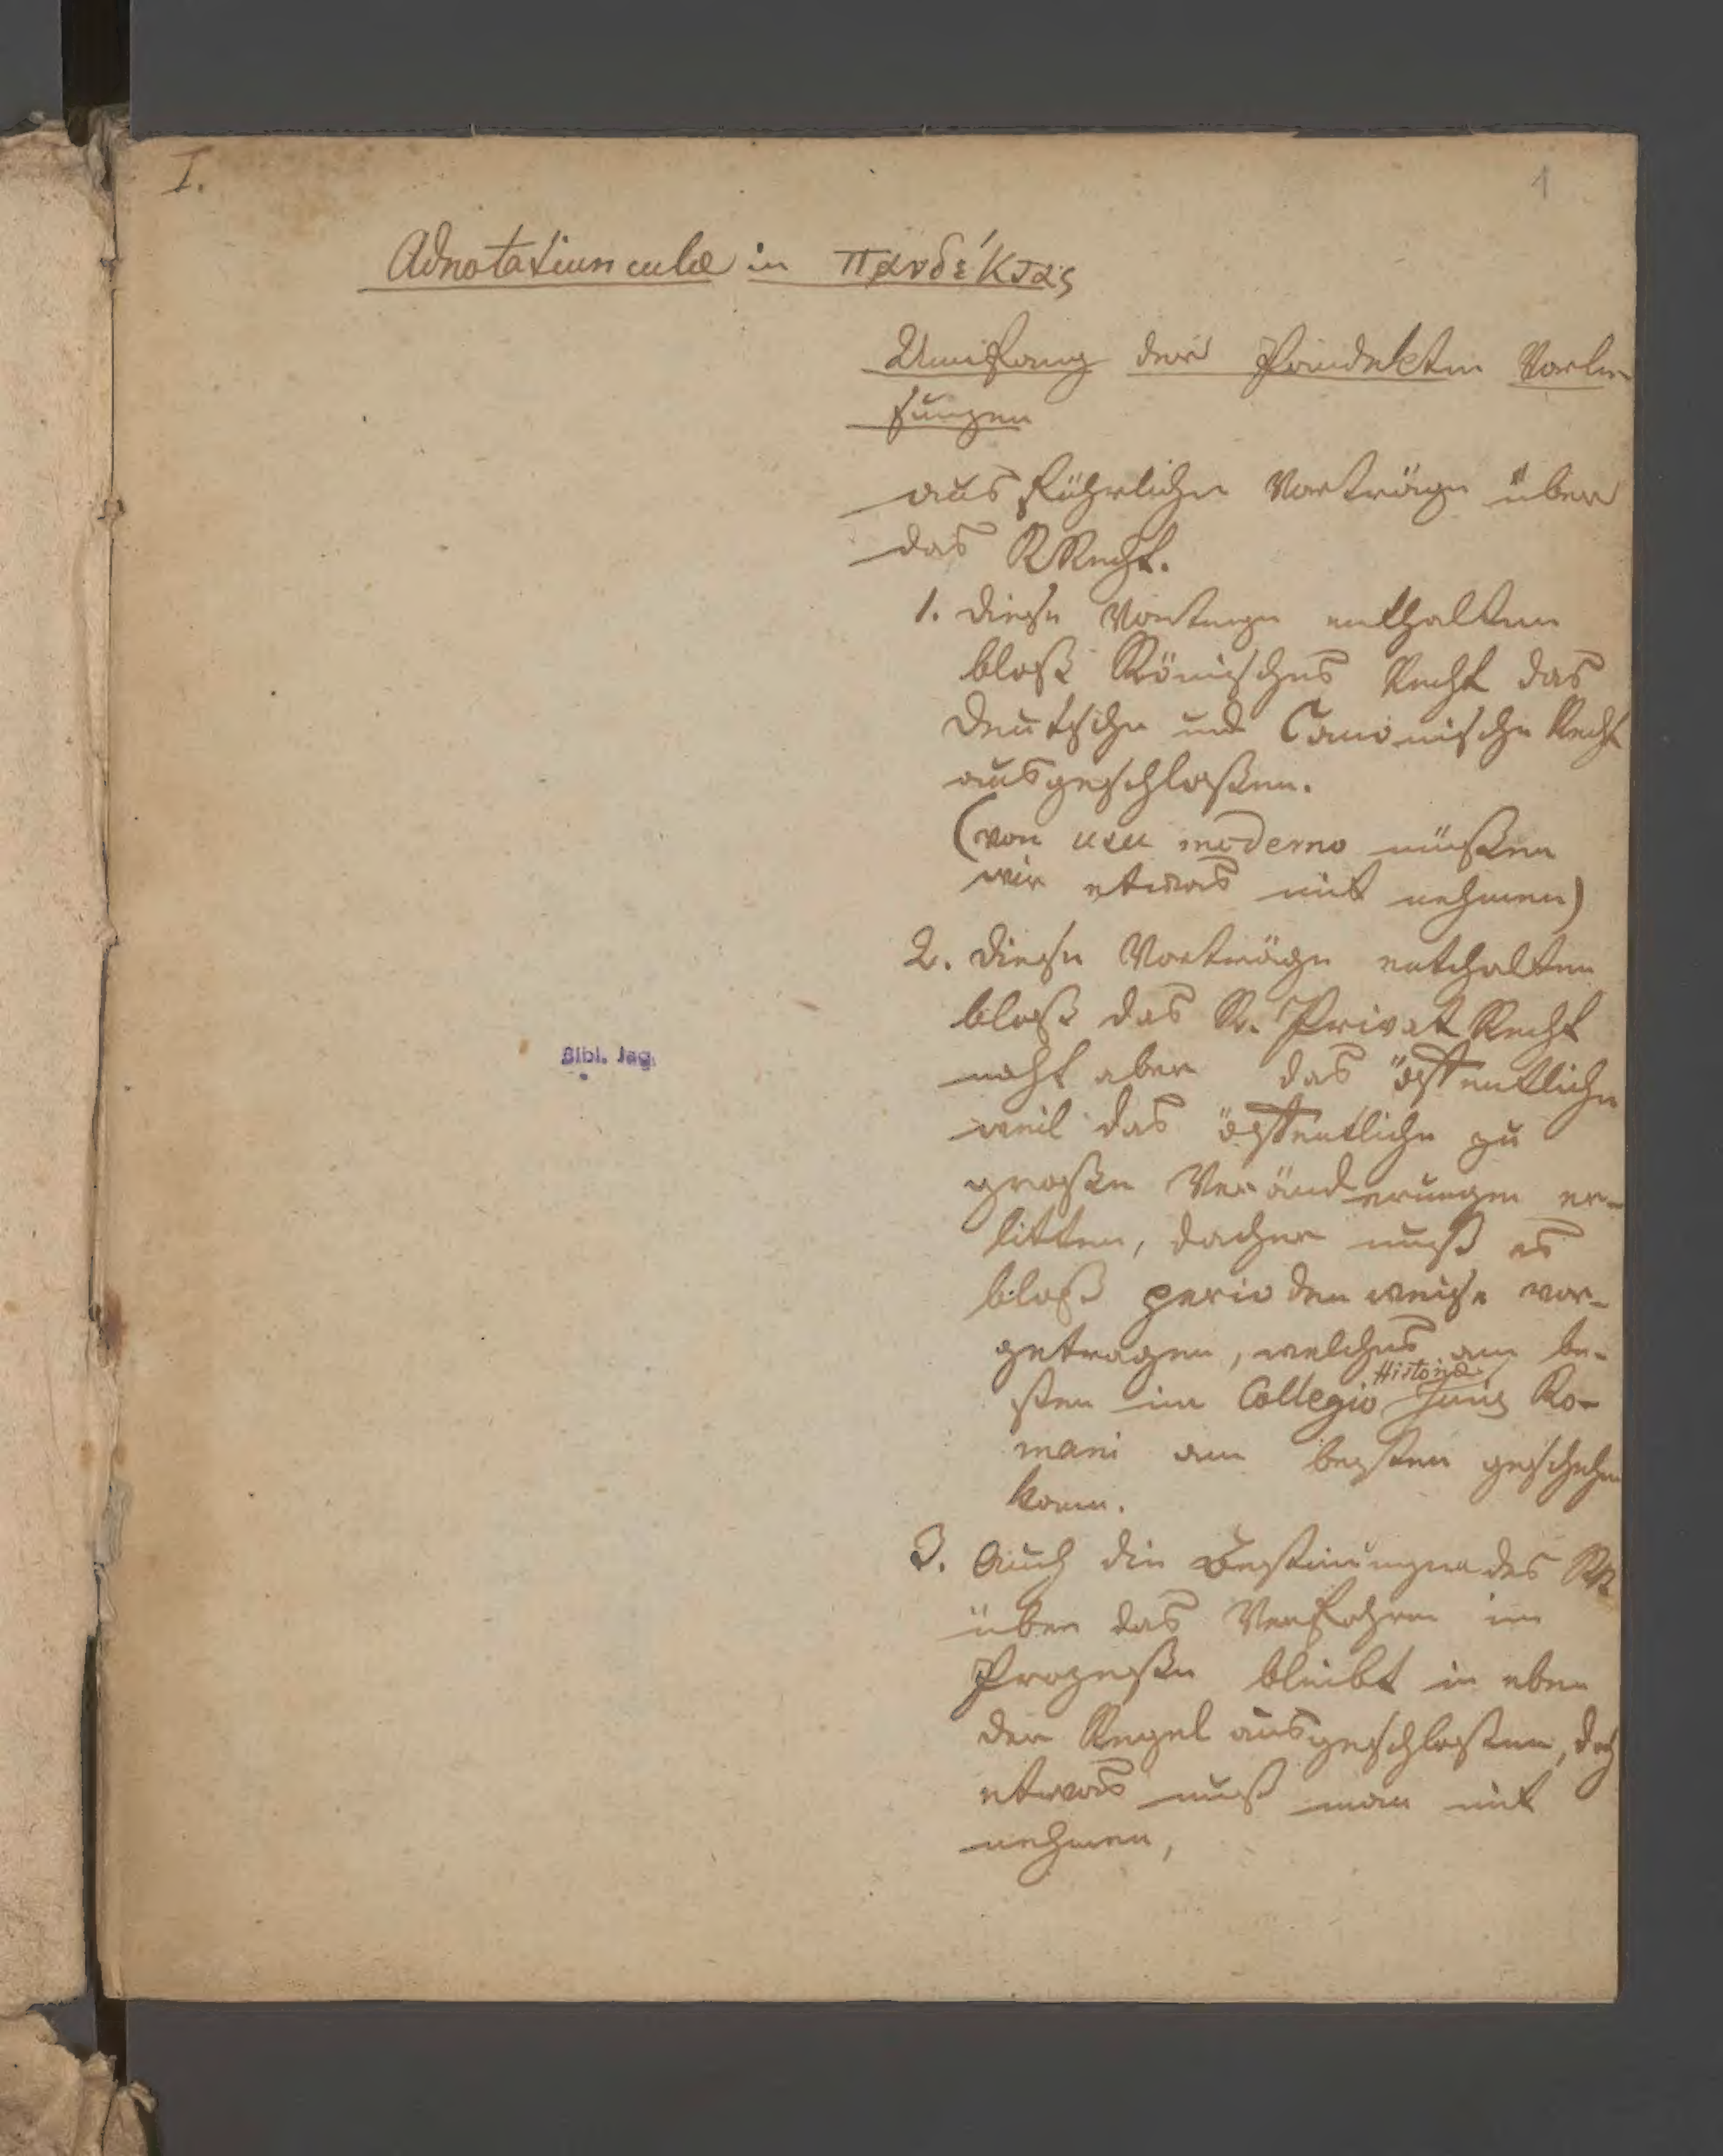 I.
1
Adnotatiunculæ in πανδέκτας
Umfang der Pandekten Vorle-
sungen
ausführliche Vorträge über
das RRecht.
1. diese Vorträge enthalten
bloß Römisches Recht das
deutsche und Canonische Recht
ausgeschloßen.
(von usu moderno müßen
wir etwas mit nehmen)
2. diese Vorträge enthalten
bloß das R. Privat Recht
nicht aber das öffentliche
weil das öffentliche zu
große Veränderungen er-
litten, daher muß es
bloß periodenweise vor-
getragen, welches am be-
Historiæ
sten im Collegio Juris Ro-
mani am besten geschehen
kann.
3. Auch die Bestimungen des RR
über das Verfahren im
Prozeße bleibt in eben
der Regel ausgeschloßen, doch
etwas muß man mit
nehmen,
Bibl. Jag.